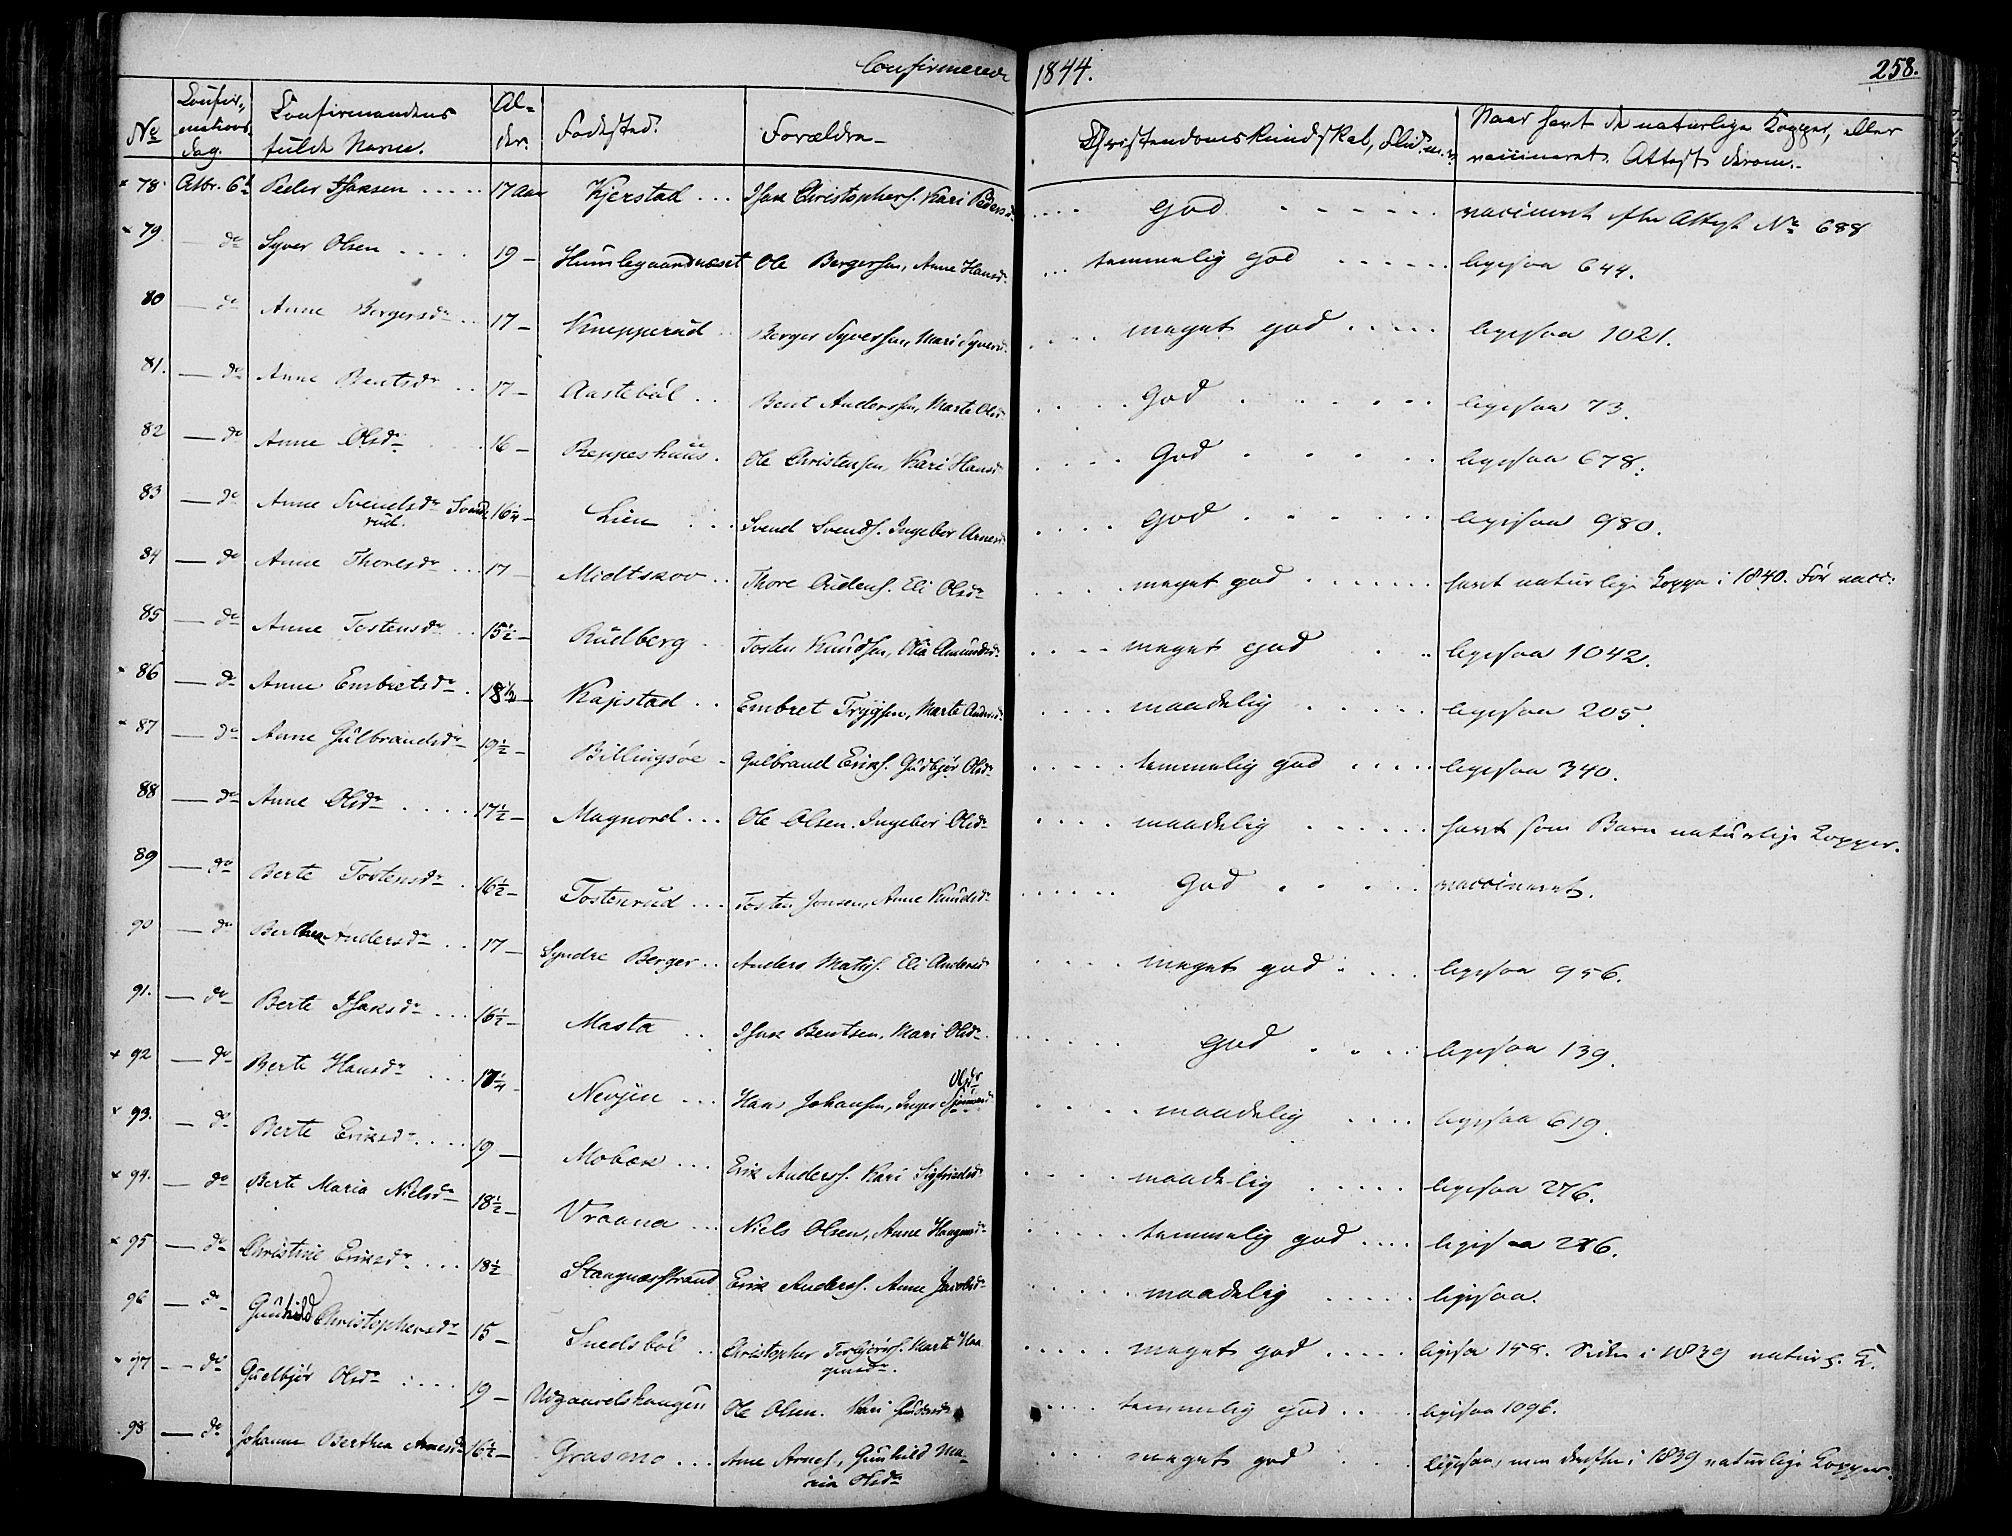 Confirmerede 1844. 258.
No Confirmations Dag. Confirmandens fulde Navn. Alder. Fødested. Forældre Christendomskundskab, Flid m.v. Naar havt de naturlige Kopper, eller vaccineret. Attest derom.
78 Octbr. 6te Peder Isaksen 17 Aar Kjerstad Isak Christophers. Kari Pedersd. God vaccineret efter Attest No 688
79. — do Syver Olsen 19 — Humlegaardnæset Ole Bergersen, Anne Hansd. temmelig god ligesaa 644.
80 — do Anne Bergersdr 17 — Knepperud Berger Syversen, Mari Syversd. meget god ligesaa 1021.
81. — do Anne Bentsdr 17 — Aastebøl Bent Andersen, Marte Olsd. God ligesaa 73.
82 — do Anne Olsdr 16 — Beppeshuus Ole Christensen, Kari Hansd. God ligesaa 678.
83 — do Anne Svendsdr Svendsrud. 16 1/4 — Lien Svend Svends. Ingebor Arnesd. God ligesaa 980.
84 — do Anne Thoresdr 17 — Midtskov Thore Audens. Eli Olsdr meget god havt naturlige Kopper i 1840. Før vacc:
85 — do Anne Tostensdr 15 1/2 — Rudberg Tosten Knudsen, Olia Amundsd. meget god ligesaa 1042.
86 — do Anne Embretsdr 18 1/2 — Kajistad Embret Trygsen, Marte Andersd. maadelig ligesaa 205.
87 — do Anne Gulbrandsdr 19 1/2 — Billingsøe Gulbrand Eriks. Gudbjør Olsdr temmelig god ligesaa 340.
88 — do Anne Olsdr 17 1/2 — Magnord Ole Olsen. Ingebor Olsdr maadelig havt som Barn naturlige Kopper.
89 — do Berte Tostensdr 16 1/2 — Tostenrud Tosten Jonsen, Anne Knudsdr God vaccineret.
90 — do Berthea Andersdr 17 — Syndre Berger Anders Mathis. Eli Andersd. meget god ligesaa 956.
91. — do Berte Isaksdr 16 1/2 — Masta Isak Bentsen, Mari Olsdr God ligesaa 139.
92 — do Berte Hansdr 17 1/4 — Nevjen Hans Johansen, Inger Olsdr maadelig ligesaa 619.
93. — do Berte Eriksdr 19 — Mobæk Erik Anders. Kari Sigfriedsdr maadelig ligesaa 276.
94. — do Berte Maria Nielsdr 18 1/2 — Vraana Niels Olsen, Anne Haagensdr temmelig god ligesaa 286.
95 — do Christine Eriksdr 18 1/2 Stangnæsstrand Erik Anders. Anne Jacobsdr maadelig ligesaa.
96 — do Gunhild Christophersdr 15 — Snedsbøl Christopher Torbjørns. Marte Haagensdr. meget god ligesaa 158. Siden i 1839 naturl. K.
97 — do Gudbjør Olsdr 19 — Nordgaardshaugen Ole Olsen. Kari temmelig god ligesaa 1096.
98 — do Johanne Berthea Arnesdr 16 1/2 — Grasmo Arne Arnes., Gunhild Maria Olsdr meget god ligesaa, men derefter i 1839 naturlige Kopper.